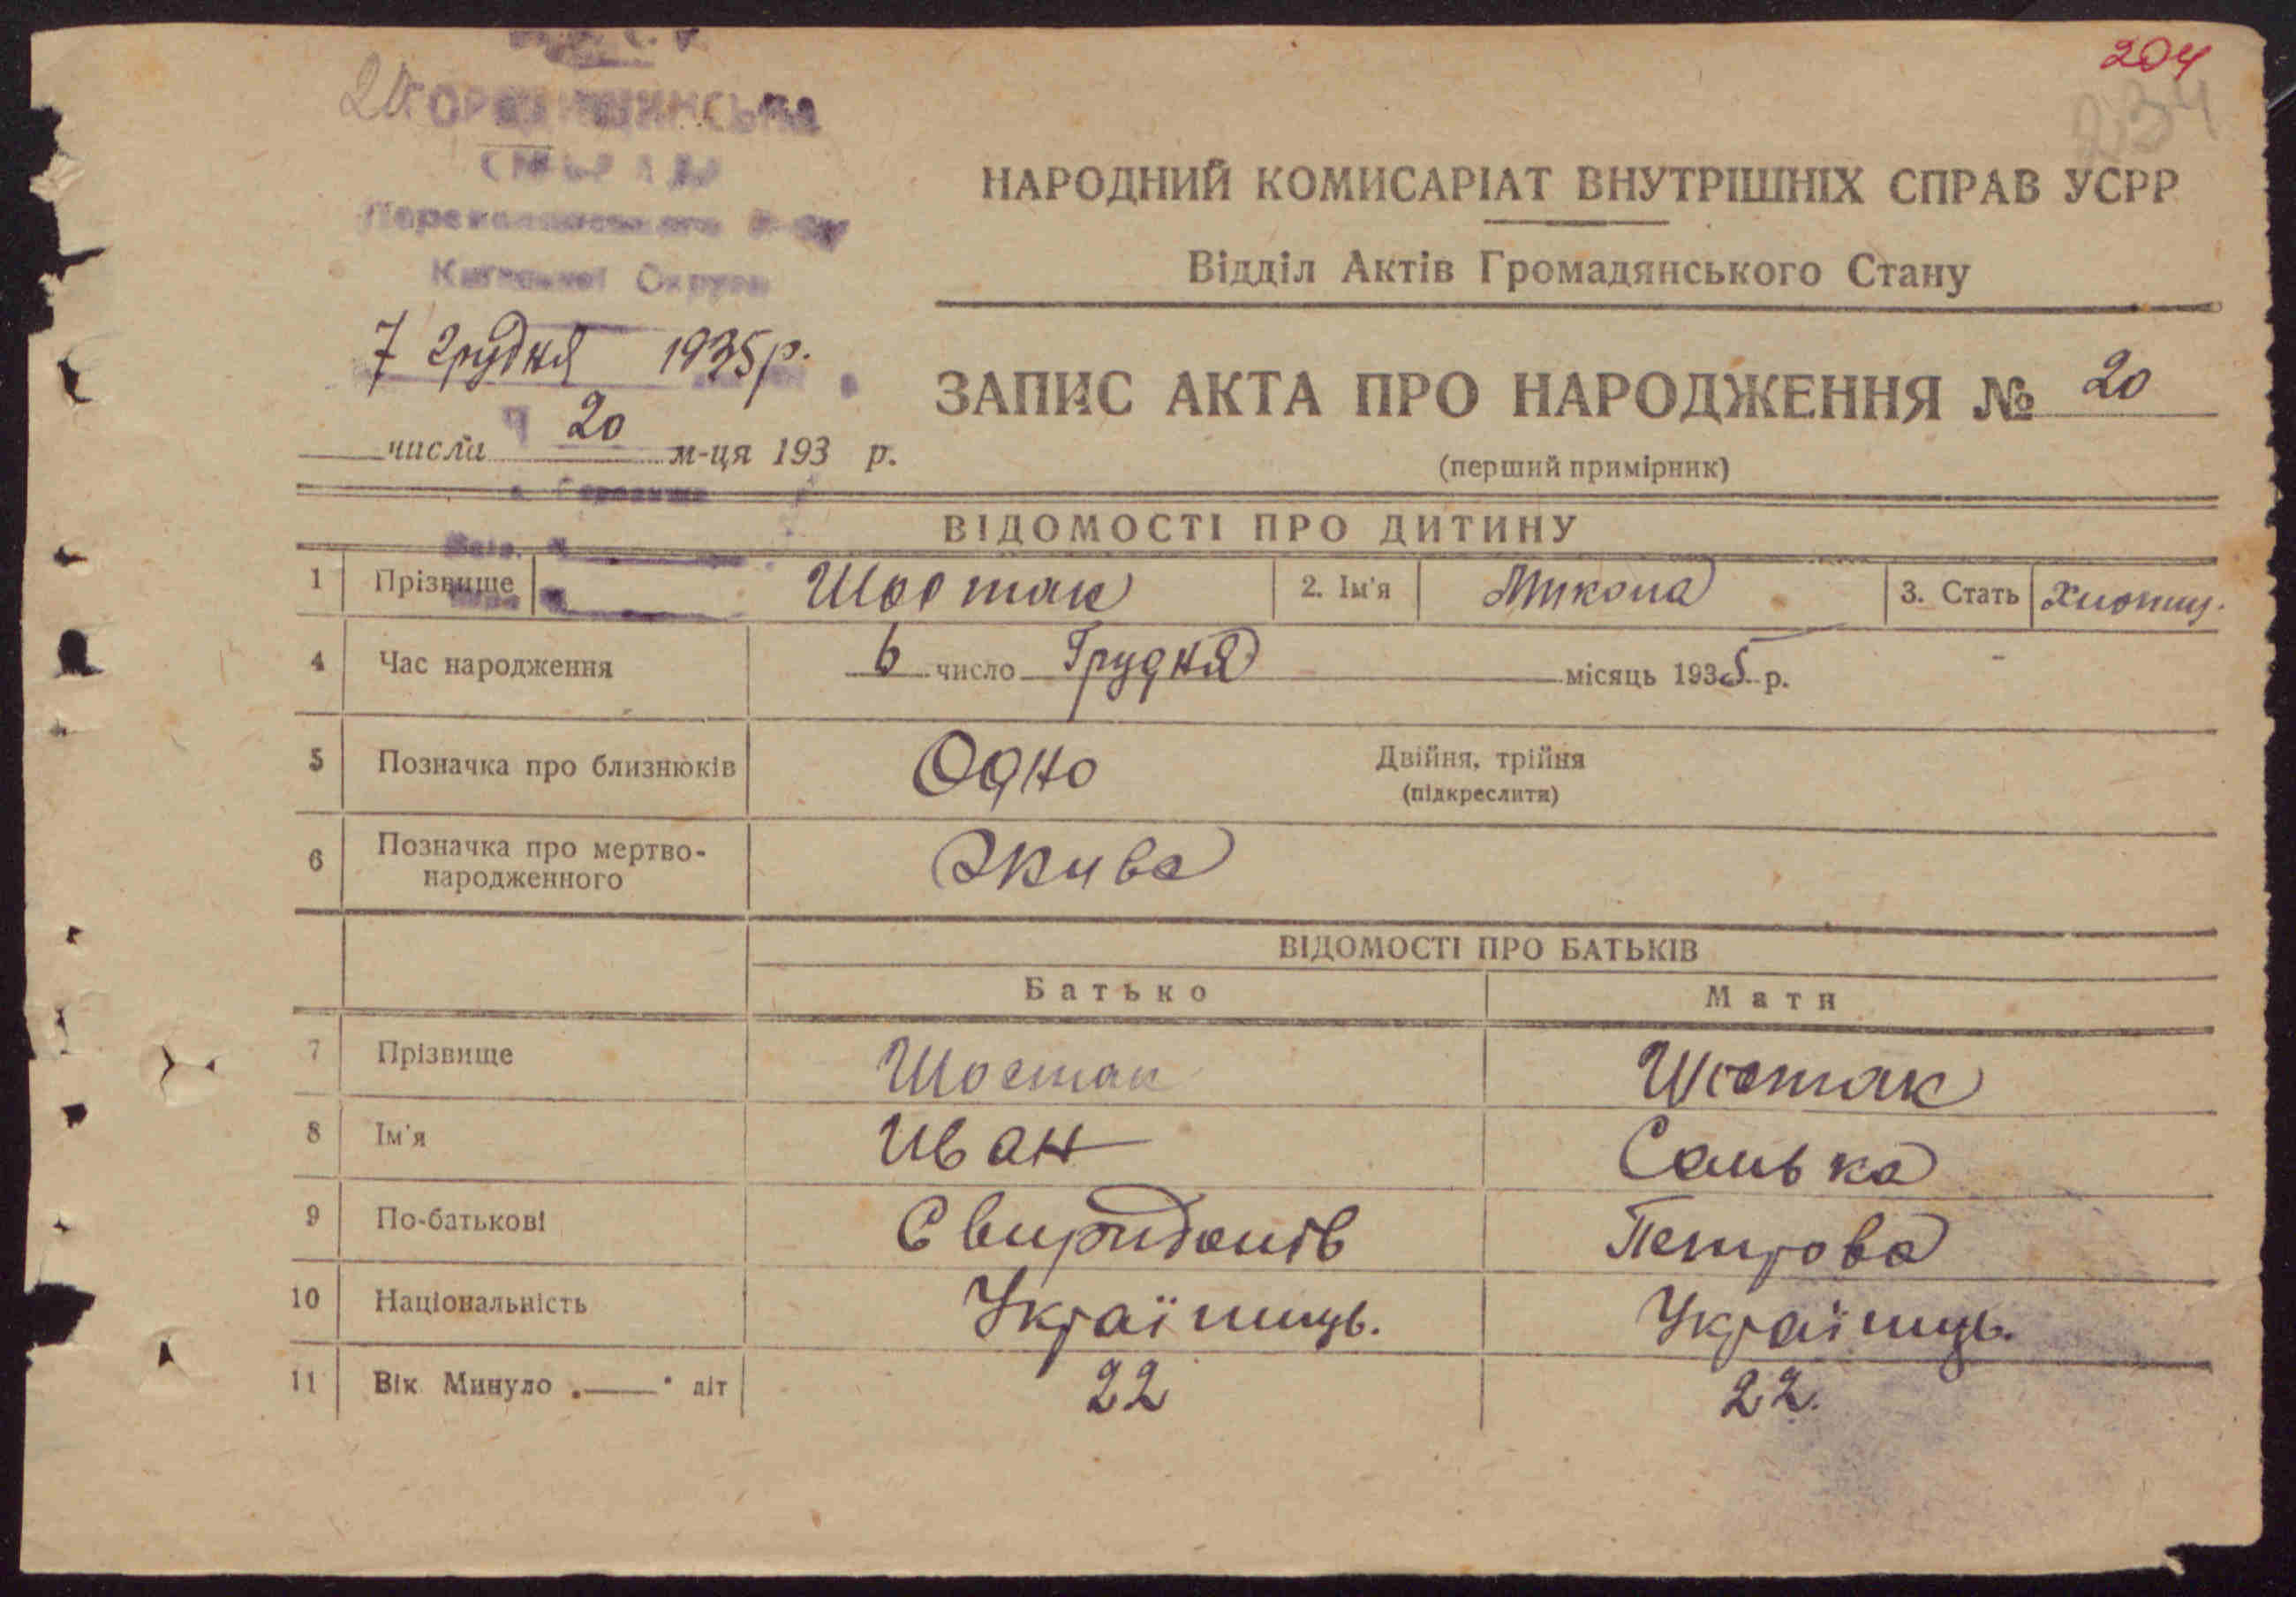 204
234
20
ГОРОДИЩИНСЬКА
Київської Округи
НАРОДНИЙ КОМИСАРІАТ ВНУТРІШНІХ СПРАВ УСРР
Відділ Актів Громадянського Стану
7 Грудня 1935 р.
числа 20 м-ця 193 р.
ЗАПИС АКТА ПРО НАРОДЖЕННЯ № 20
(перший примірник)
ВІДОМОСТІ ПРО ДИТИНУ
1 Прізвище Шостак 2. Ім'я Микола 3. Стать Хлопец.
4 Час народження 6 число Грудня місяць 1935 р.
5 Позначка про близнюків Одно Двійня, трійня
(підкреслити)
6 Позначка про мертво-
народженного Жива
ВІДОМОСТІ ПРО БАТЬКІВ
Батько Мати
7 Прізвище Шостак Шостак
8 Ім'я Иван Санька
9 По-батькові Свиридонів Петрова
10 Національність Українець. Українець.
11 Вік Минуло „—" літ 22 22.